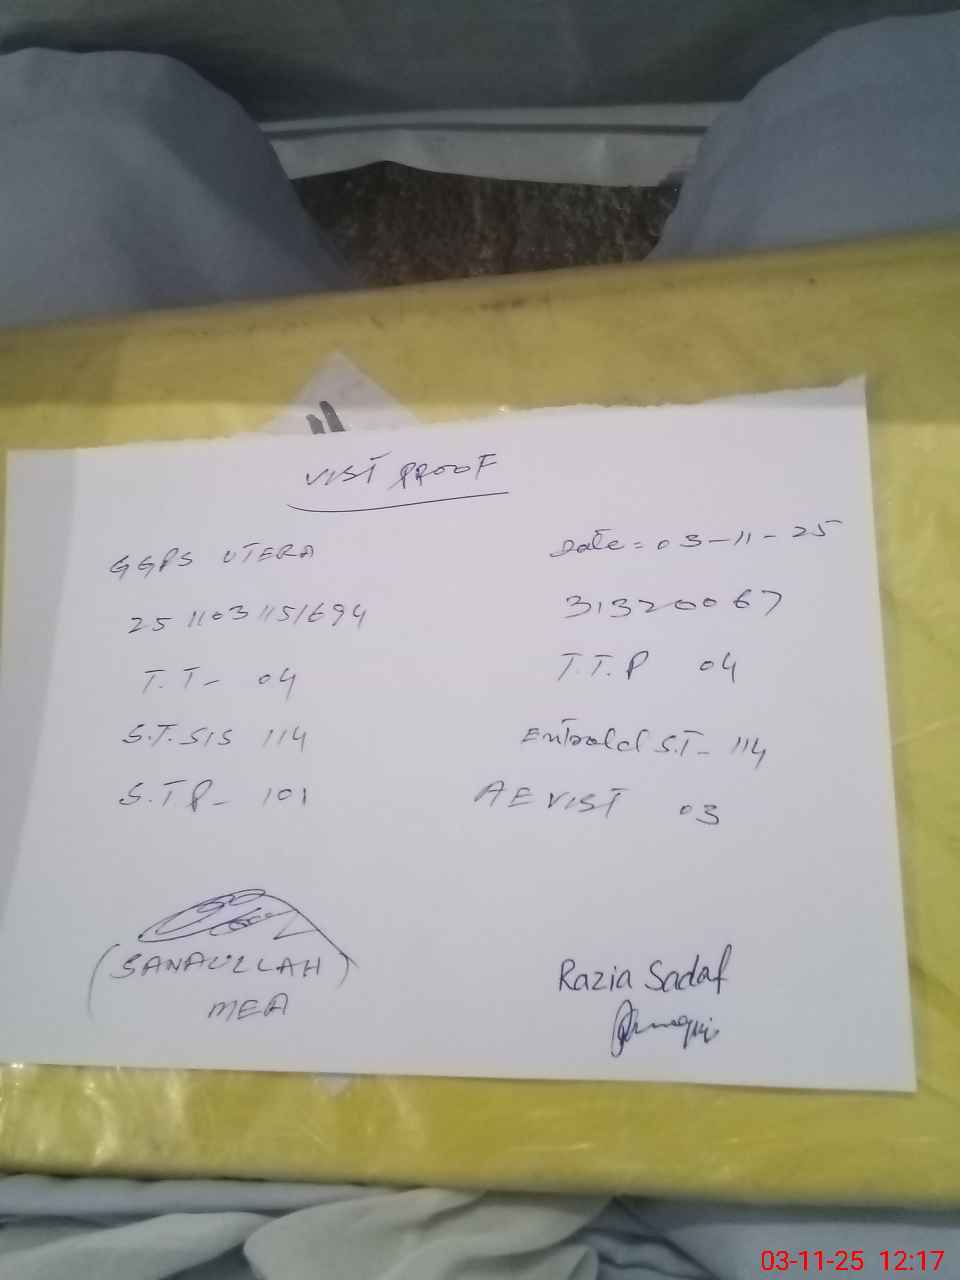 VIST PROOF
GGPS UTERA
Date = 03-11-25
25 1103 1151694
31320067
T.T- 04
T.T.P 04
S.T. SIS 114
Entrold S.T- 114
S.T P- 101
AE VIST 03
(SANAULLAH)
MEA
Razia Sadaf
03-11-25 12:17